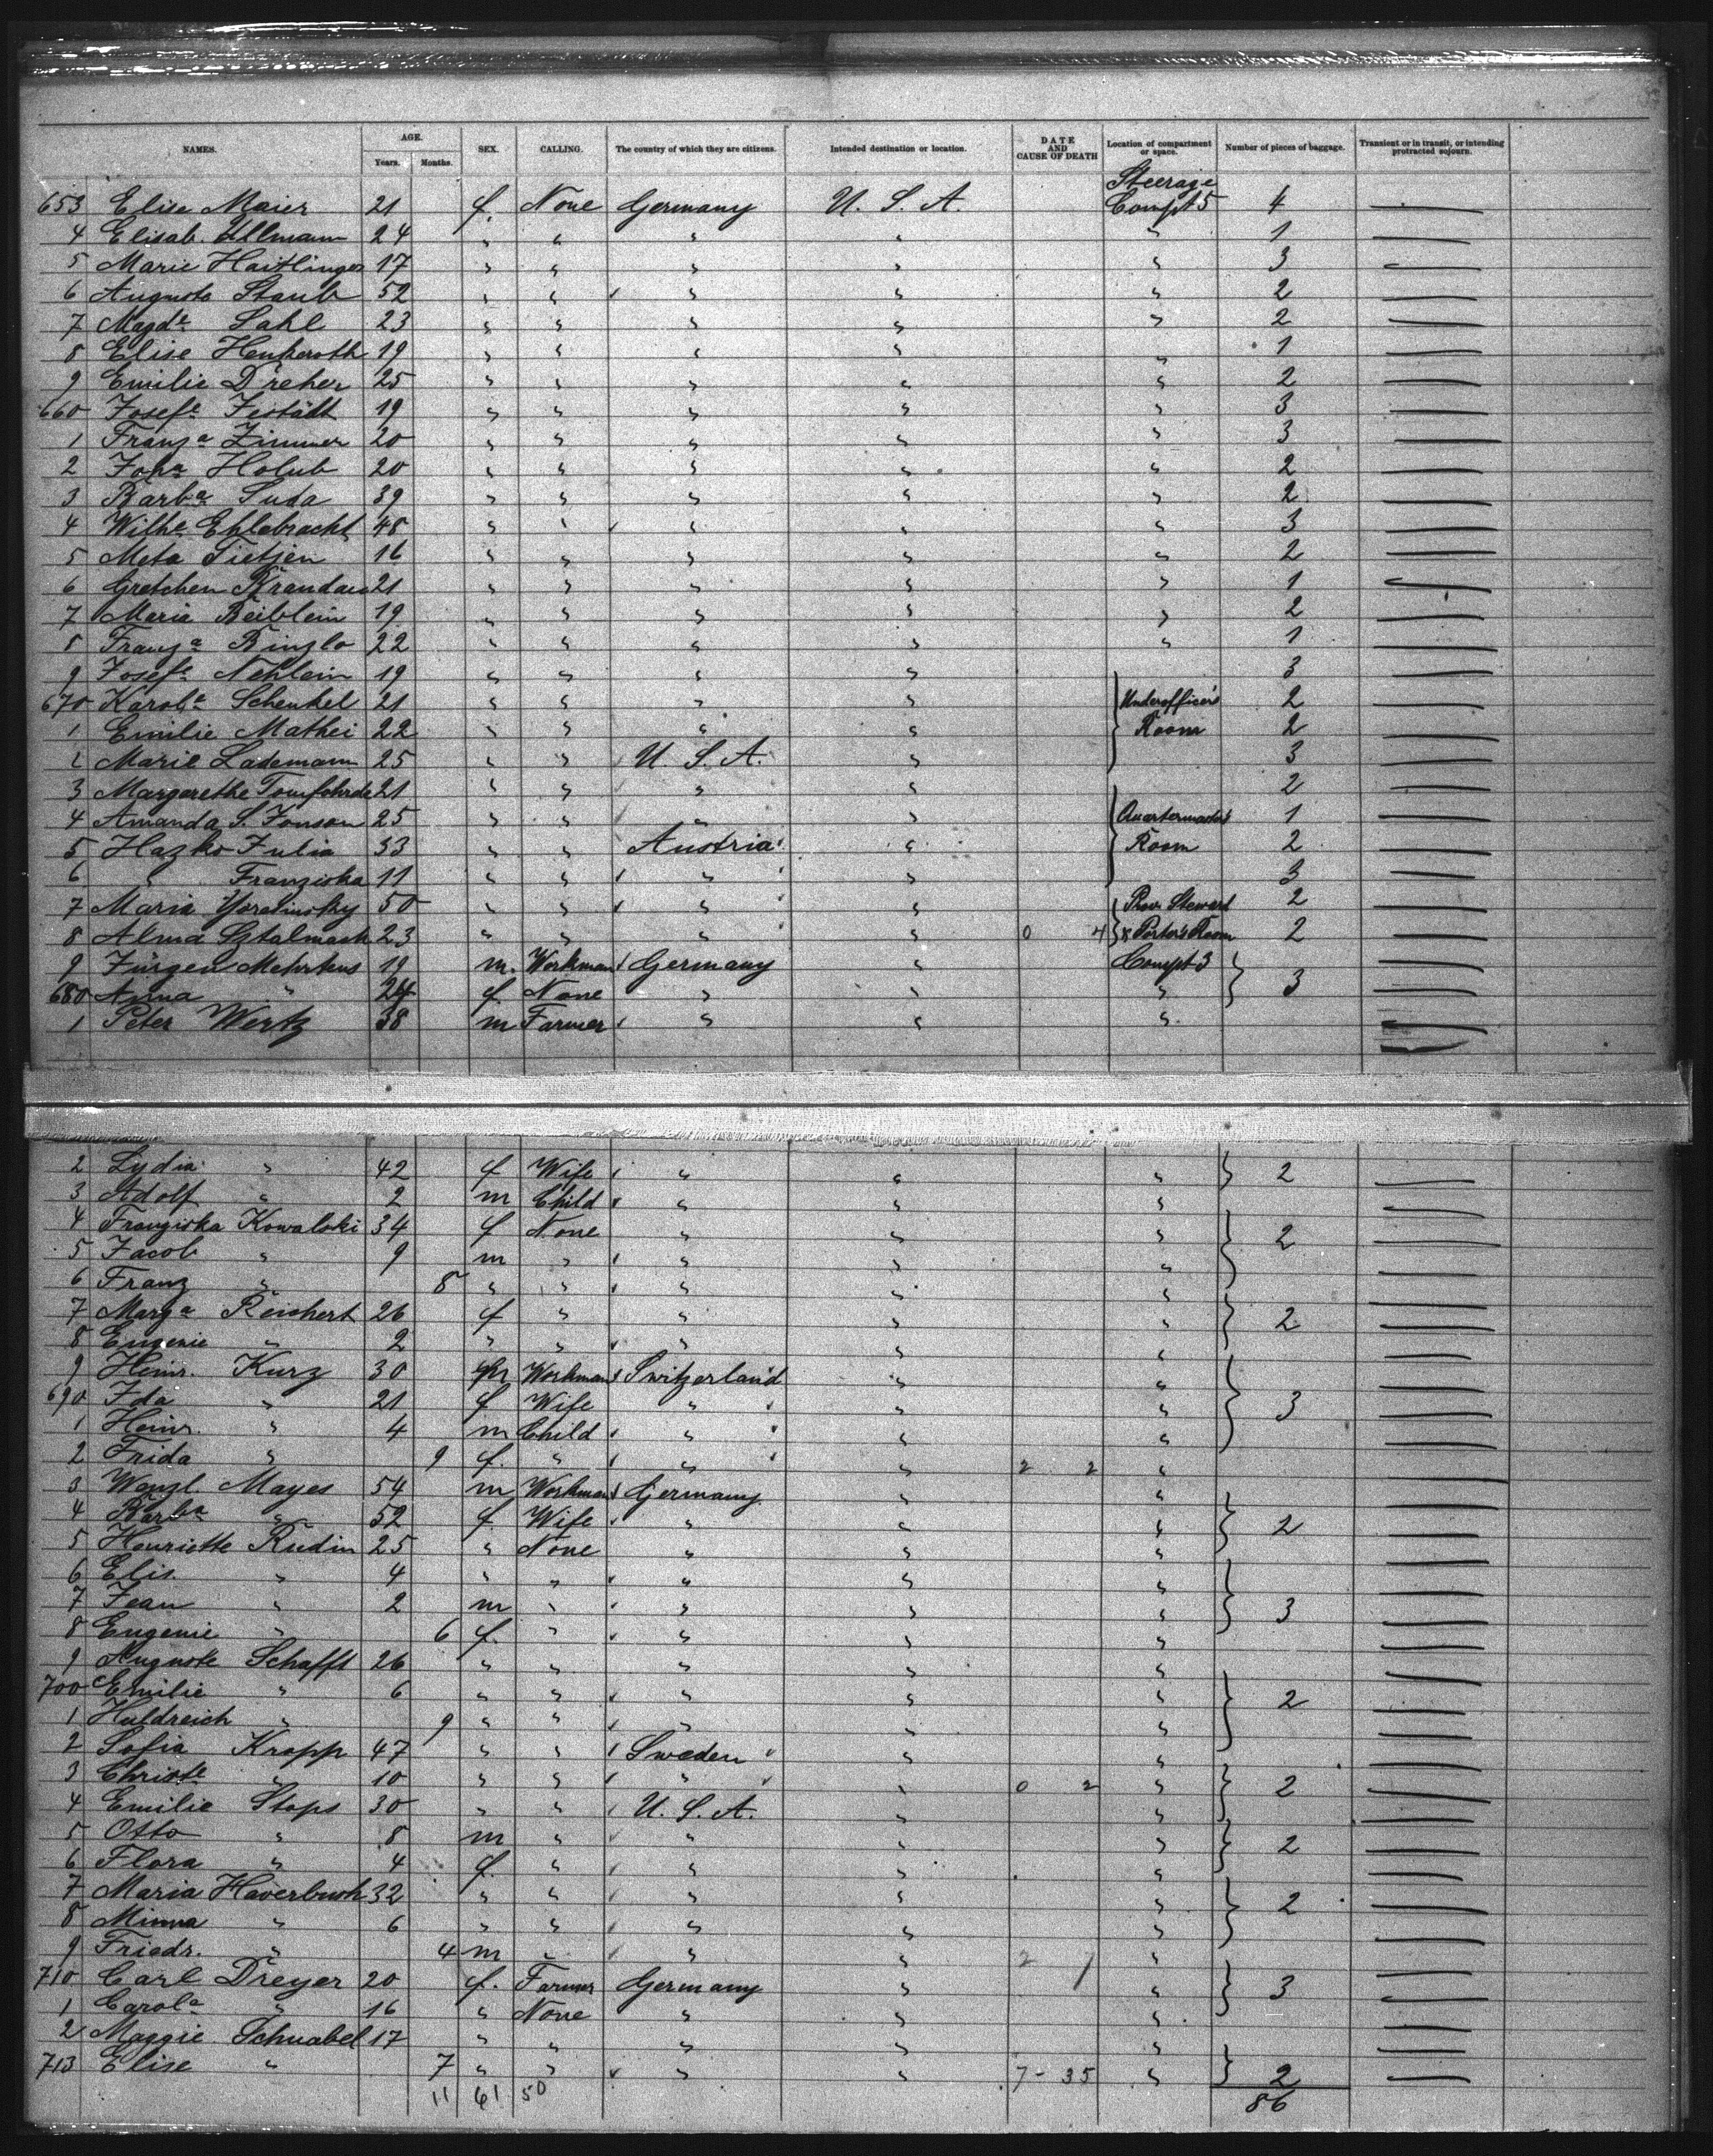 NAMES. AGE. Years. Months. SEX. CALLING. The country of which they are citizens. Intended destination or location. DATE AND CAUSE OF DEATH Location of compartment or space. Number of pieces of baggage. Transient or in transit, or intending protracted sojourn.
653 Elise Maier 21 f. None Germany U. S. A. Steerage Compt 5 4 —
4 Elisab. Ullmann 24 " " " " " 1 —
5 Marie Haitlinger 17 " " " " " 3 —
6 Auguste Staub 52 " " " " " 2 —
7 Magde Sahl 23 " " " " " 2 —
8 Elise Henkeroth 19 " " " " " 1 —
9 Emilie Dreher 25 " " " " " 2 —
660 Josefe Jestädt 19 " " " " " 3 —
1 Franza Zimmer 20 " " " " " 3 —
2 Joha Holub 20 " " " " " 2 —
3 Barba Suda 39 " " " " " 2 —
4 Wilhe Ehlebracht 48 " " " " " 3 —
5 Meta Tietjen 16 " " " " " 2 —
6 Gretchen 21 " " " " " 1 —
7 Maria Beiblein 19 " " " " " 2 —
8 Franza Binzlo 22 " " " " " 1 —
9 Josefe Nehlein 19 " " " " 3 —
670 Karole Schenkel 21 " " " " Underofficer's 2 —
1 Emilie Mathei 22 " " " " Room 2 —
2 Marie Lademann 25 " " U. S. A. " 3 —
3 Margarethe Tomforde 21 " " " " 2 —
4 Amanda S. Jonson 25 " " " " Quartermaster's 1 —
5 Hazko Julia 33 " " Austria " Room 2 —
6 " Franziska 11 " " " " 3 —
7 Maria 50 " " " " Prov. Steward 2 —
8 Alma Sztalmack 23 " " " " 0 4 & Porter's Room 2 —
9 Jürgen Mehrtens 19 m. Workman Germany " Compt 3 } 3 —
680 Anna " 24 f. None " " " —
1 Peter Wertz 38 m Farmer " " " —
2 Lydia " 42 f Wife " " " } 2 —
3 Adolf " 2 m Child " " " —
4 Franziska Kowalski 34 f None " " " } 2 —
5 Jacob " 9 m " " " " —
6 Franz " 8 " " " " " —
7 Marga Reichert 26 f " " " " } 2 —
8 Eugenie " 2 " " " " " —
9 Heinr. Kurz 30 m Workman Switzerland " " } 3 —
690 Ida " 21 f Wife " " " —
1 Heinr. " 4 m Child " " " —
2 Frida " 9 f. " " " 2 2 " —
3 Wenzl. Mayes 54 m Workman Germany " " } 2 —
4 Barba " 52 f. Wife " " " —
5 Henriette Rudin 25 " None " " " } 3 —
6 Elis. " 4 " " " " " —
7 Jean " 2 m " " " " —
8 Eugenie " 6 f. " " " " —
9 Auguste Schafft 26 " " " " " } 2 —
700 Emilie " 6 " " " " " —
1 Huldreich " 9 " " " " " —
2 Sofia Kropp 47 " " Sweden " " } 2 —
3 Christe " 10 " " " " 0 2 " —
4 Emilie Stops 30 " " U. S. A. " " } 2 —
5 Otto " 8 m " " " " —
6 Flora " 4 f. " " " " —
7 Maria Haverbush 32 " " " " " } 2 —
8 Minna " 6 " " " " " —
9 Friedr. " 4 m " " " 2 1 " —
710 Carl Dreyer 20 f. Farmer Germany " " } 3 —
1 Carole " 16 " None " " " —
2 Maggie Schnabel 17 " " " " " } 2 —
713 Elise " 7 " " " " 7 - 35 " —
11 61 50 86